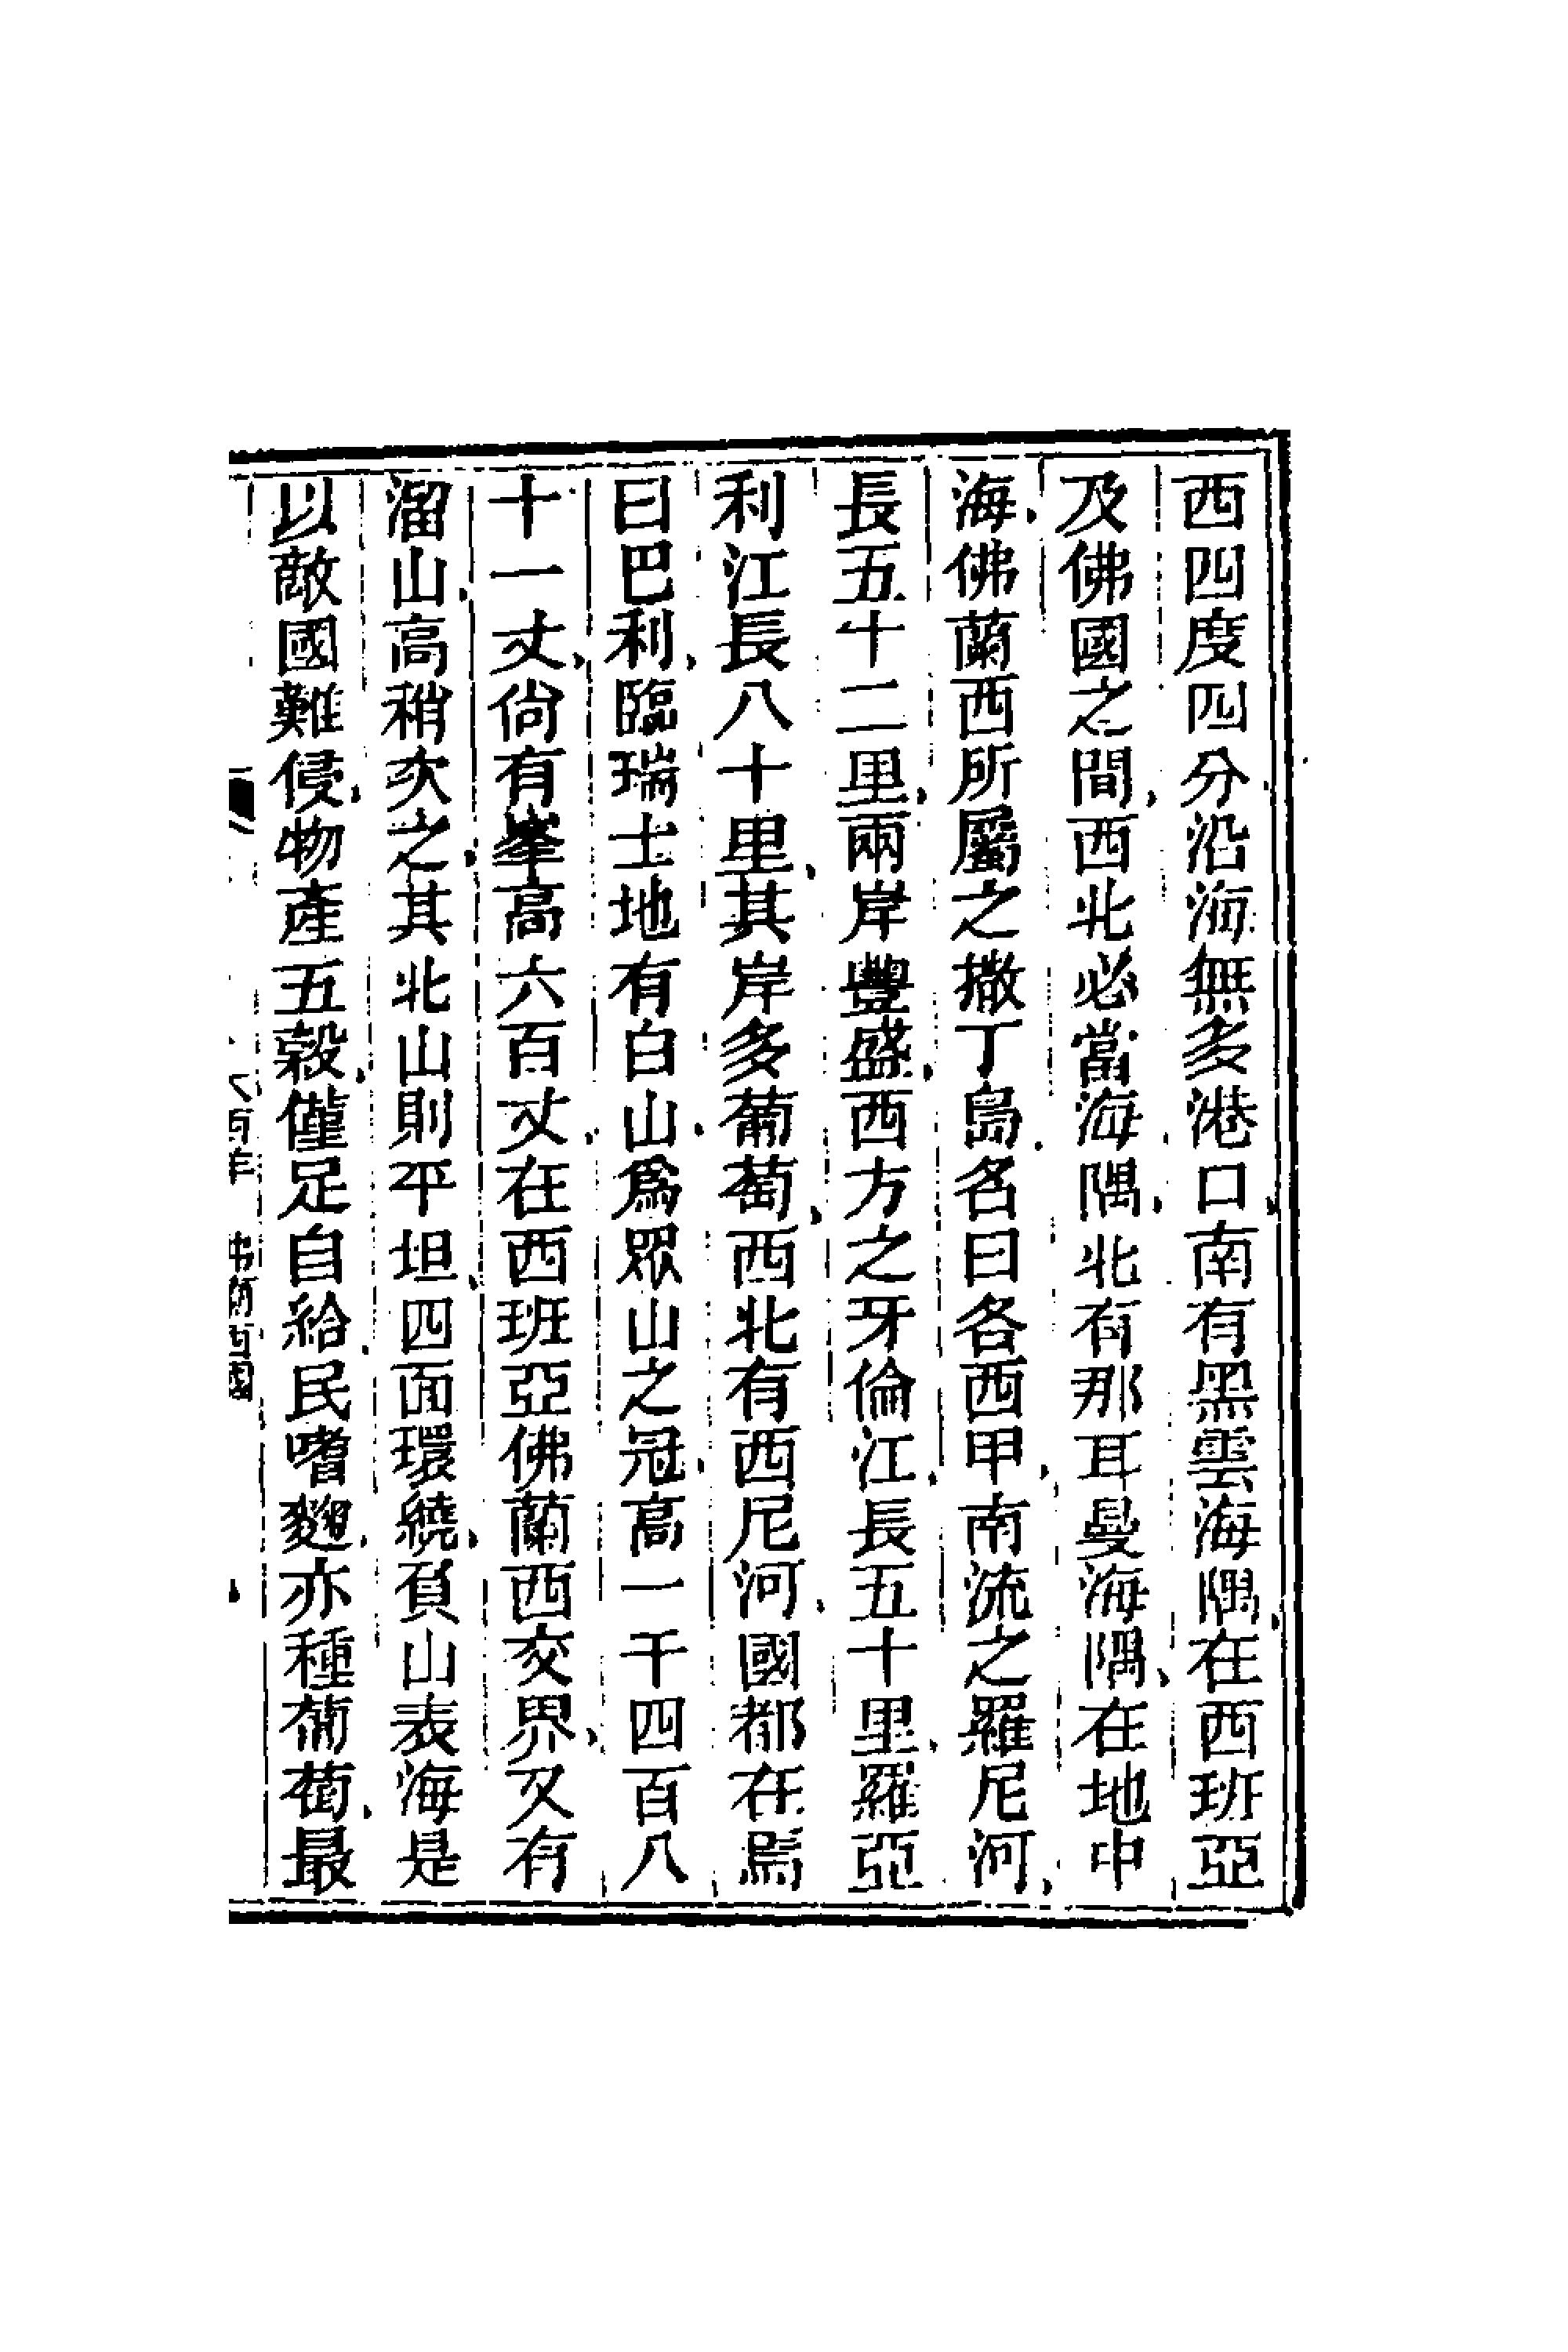 西四度四分沿海無多港口南有黑雲海隅在西班亞
及佛國之間西北必當海隅北有那耳曼海隅在地中
海佛蘭西所屬之撒丁島名曰各西甲南流之羅尼河
長五十二里兩岸豐盛西方之牙倫江長五十里羅亞
利江長八十里其岸多葡萄西北有西尼河國都在焉
曰巴利臨瑞士地有白山爲眾山之冠高一千四百八
十一丈尙有峯高六百丈在西班亞佛蘭西交界又有
溜山高稍次之其北山則平坦四面環繞負山表海是
以敵國難侵物產五穀僅足自給民嗜麯亦種葡萄最
大西洋 佛蘭西國